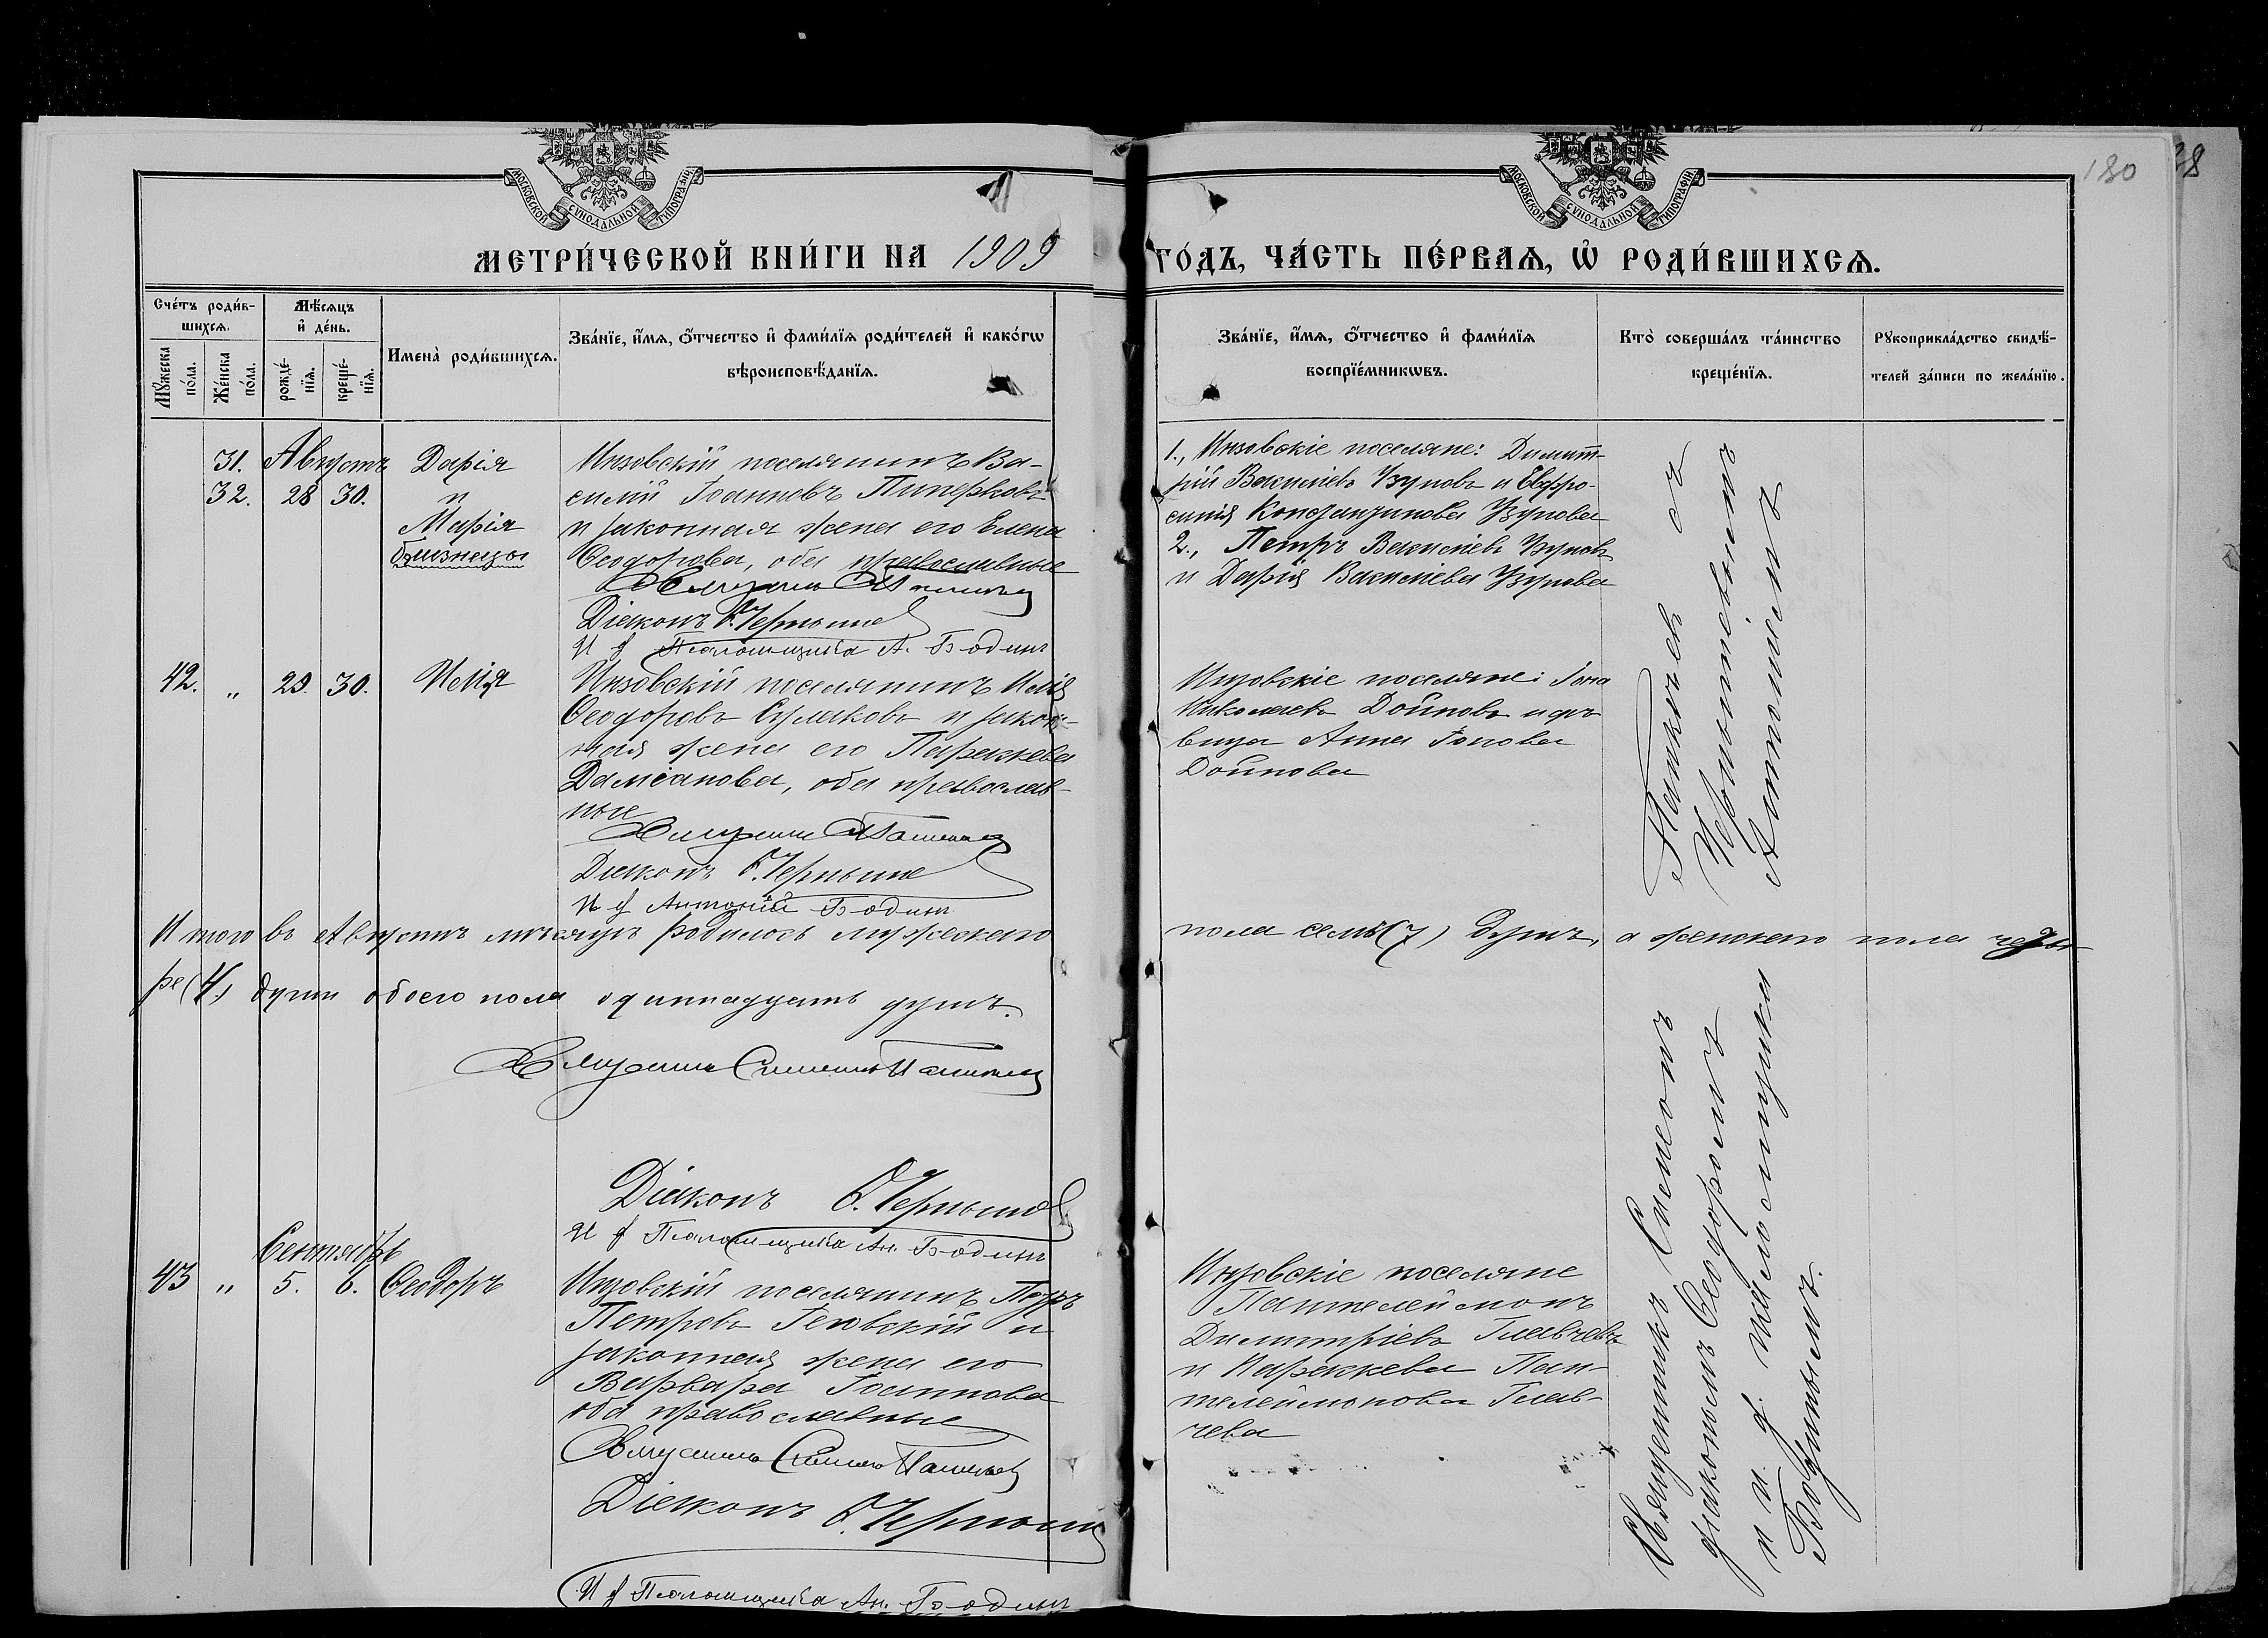 180
38
МОСКОВСКОЙ СѴНОДАЛЬНОЙ ТИПОГРАФІИ
МОСКОВСКОЙ СѴНОДАЛЬНОЙ ТИПОГРАФІИ
МЕТРИ́ЧЕСКОЙ КНИ́ГИ НА 1909 ГО́ДЪ, ЧА́СТЬ ПЕ́РВАѦ, Ѡ҆ РОДИ́ВШИХСѦ.
Сче́тъ роди́в-
шихсѧ.
Мꙋ́жеска
по́ла.
Же́нска
по́ла.
Мѣ́сѧцъ
и҆ де́нь.
рожде́-
нїѧ.
креще́-
нїѧ.
Имена̀ роди́вшихсѧ.
Зва́нїе, и҆́мѧ, ѻ҆́тчество и҆ фами́лїѧ роди́телей и҆ како́гѡ
вѣроисповѣ́данїѧ.
Зва́нїе, и҆́мѧ, ѻ҆́тчество и҆ фами́лїѧ
воспрїе́мникѡвъ.
Кто̀ соверша́лъ та́инство
креще́нїѧ.
Рꙋкоприкла́дство свидѣ́-
телей за́писи по жела́нїю.
31. Августъ Дарія
32. 28 30. и
Марія
близнецы
Инзовскій поселянинъ Ва-
силій Іоанновъ Пиперковъ
и законная жена его Елена
Ѳеодорова, оба православные
Діаконъ Ѳ. Черноиче
И д Псаломщика А. Бодин
1., Инзовскіе поселяне: Димит-
рій Василіевъ Узуновъ и Евфро-
синія Константинова Узунова
2., Петръ Василіевъ Узуновъ
и Дарія Василіева Узунова
42. „ 29. 30. Илія
Инзовскій поселянинъ Илія
Ѳеодоровъ Сулаковъ и закон-
ная жена его Параскева
Даміанова, оба православ-
ные
Діаконъ Ѳ. Черноиче
И д Антоній Бодин
Инзовскіе поселяне: Іона
Николаевъ Дойновъ и дѣ-
вица Анна Іонова
Дойнова
Итого въ Августѣ мѣсяцѣ родилось мужескаго пола семь (7) душъ, а женскаго пола четы-
ре (4) души обоего пола одиннадцать душъ.
Діаконъ Ѳ. Черноиче
И д Псаломщика Ан. Бодин
Сентябрь
43 „ 5. 6. Ѳеодоръ
Инзовскій поселянинъ Петръ
Петровъ Геювскій и
законная жена его
Варвара Іоаннова
оба православные
Діаконъ Ѳ. Черноиче
И д Псаломщика Ан. Бодин
Инзовскіе поселяне
Пантелеймонъ
Димитріевъ Главчевъ
и Параскева Пан-
телеймонова Глав-
чева
Священникъ Симеонъ Пашкчев съ
діакономъ Ѳеодоромъ
и и. д. псаломщика Антоніемъ
Бодинымъ.